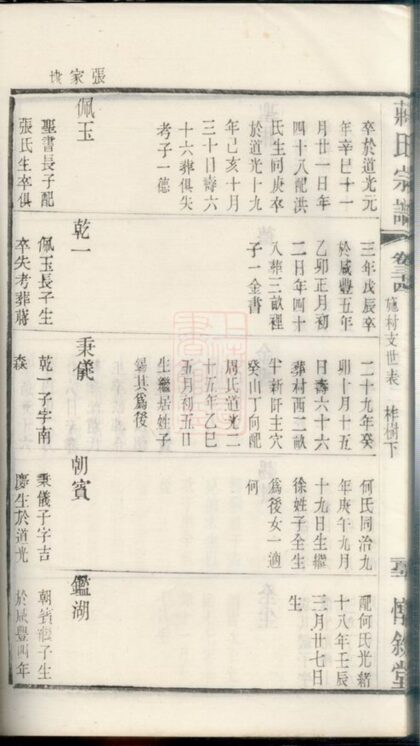 蔣氏宗譜
卷三
村支世表 柞樹下
惇敘堂
張家
卒於道光元
年辛巳十一
月廿一日年
四十八配洪
氏生同庚卒
於道光十九
年己亥十月
三十日壽六
十六葬俱失
考子一德
佩玉
聖書長子配
張氏生卒俱
三年戊辰卒
於咸豐五年
乙卯正月初
二日年四十
入葬三畝裡
子一金書
乾一
佩玉長子生
卒失考葬蔣
二十九年癸
卯十月十五
日壽六十六
葬村西二畝
半新阡主穴
癸山丁向配
周氏道光二
十五年乙巳
五月初五日
生繼居姓子
錫其爲後
秉儀
乾一子字南
森
何氏同治九
年庚午九月
十九日生繼
徐姓子全生
爲後女一適
何
朝賓
秉儀子字吉
慶生於道光
配何氏光緒
十八年壬辰
三月廿七日
生
鑑湖
朝賓繼子生
於咸豐四年